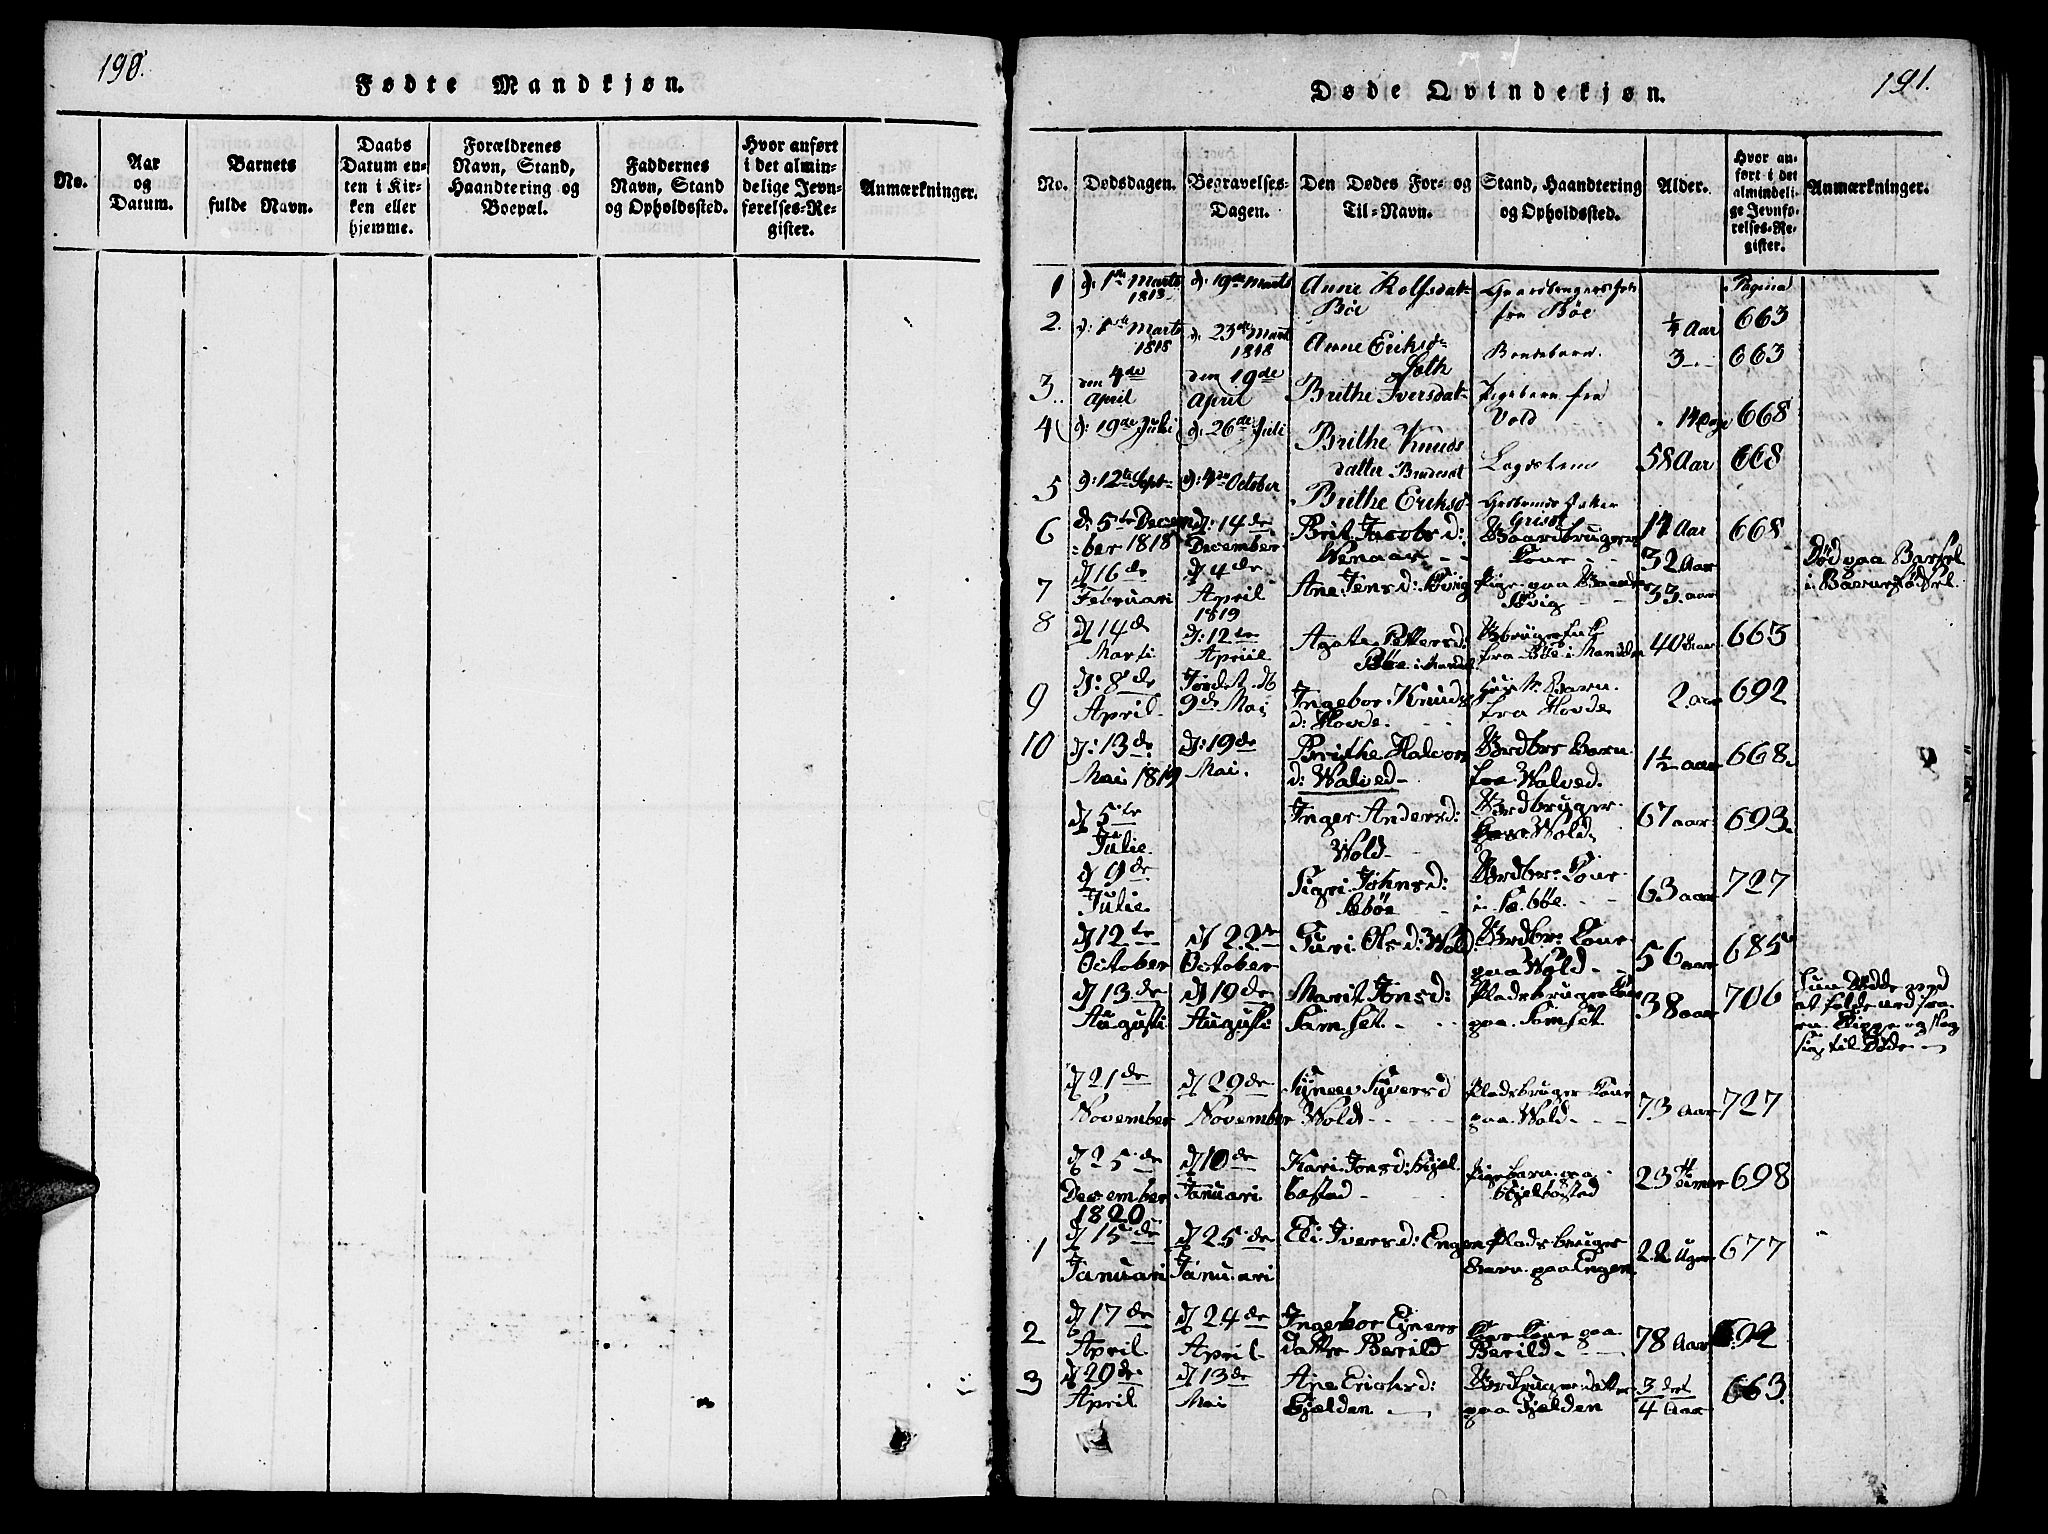 190.
Fødte Mandkjøn.
No.
Aar og Datum.
Barnets fulde Navn.
Daabs Datum en- ten i Kir- ken eller hjemme.
Forældrenes Navn, Stand, Haandtering og Boepæl.
Faddernes Navn, Stand og Opholdssted.
Hvor anført i det almin- delige Jevn- førelses-Re- gister.
Anmærkninger.
191.
Døde Qvindekjøn.
No.
Dødsdagen.
Begravelses- Dagen.
Den Dødes For- og Til-Navn.
Stand, Haandtering og Opholdssted.
Alder.
Hvor an- ført i det almindeli- ge Jevnfø- relses-Re- gister.
Anmærkninger.
Pagina
1 d: 1te Marts 1818 d: 19de Marts Anne Rolfsdat- Bøe fra Bøe ¼ Aar 663
2. d: 1ste Marts 1818 d. 23de Marts 1818 Anne Eriksd- 3 663
3.. den 4de April den 19de April Brithe Iversdat- Pigebarn fra Vold 14 Dage 668
4 d: 19de Juli d: 26de Juli Brithe Knuds datter Lægdslem 58 Aar 668
5 d: 12te Sept- d: 4de October Brithe Eriksd- 14 Aar 668
6 d: 5te Decem =ber 1818 d: 14de December Brit Jacobs d: Wenaas - - Gaardbrugers Kone - 32 Aar Død paa Barsel i Barnefødsel.
7 d 16de Februari d 4de April 1819 Ane Jens d: Søvig Pige paa Gaarden Søvig - 33. aar
8 d 14de Marti d: 12te Apriil Agate Pettersd: Bøe i Mandal fra Bøe i Mandalen 40 Aar 663
9 d: 8de April Jordet d 9de Mai Ingebor Knuds d: Hovde. Barn fra Hovde 2. aar 692
10 d: 13de Mai 1819 d: 19de Mai. Brithe Halvors d: Walved- Grdbrs Barn fra Walved. 1½ aar 668.
d 5te Julie Inger Andersd: Wold Gardbruger Wold 67 aar 693.
d 9de Julie Sigri Johns d: Sæbøe Grdbr. Kone i Sæbøe. 63 aar 727
d 12te October d 22de October Turi Ols d: Wold Grdbrs Kone paa Wold - 56 aar 685
d 13de Augusti d 19de Augusti Marit Jonsd: Samset - Pladsbruger Kone paa Samset 38 aar 706 Hun Døde ved at falde ned fra en Klippe og slog sig til Døde -
d 21de November d 29de November Synnev Syversd Wold - - Pladsbruger Kone paa Wold - - 73 aar 727
d 25de December d 10de Januari Kari Jonsd: Hjel bostad - Pigebarn paa Hjelbostad 23 Timer 698
1820
1 d 15de Januari d 25de Januari Eli Ivers d: Engen Pladsbruger Barn paa Engen 22 Uger 677
2 d 17de April d 24de April Ingebor Ejners datter Berild Kone paa Berild - 78 Aar 692
3 d 20de April d 13de Mai Ane Erichsd: Gjelden - Gardbruger datter paa Gjelden 3/4 Aar 663.